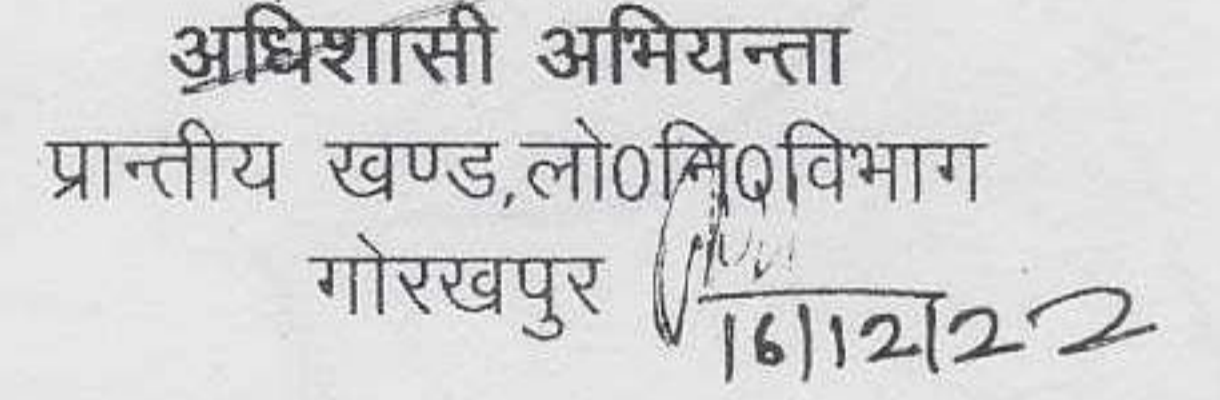 अधिशासी अभियन्ता
प्रान्तीय खण्ड,लो0नि0विभाग
गोरखपुर
16/12/22